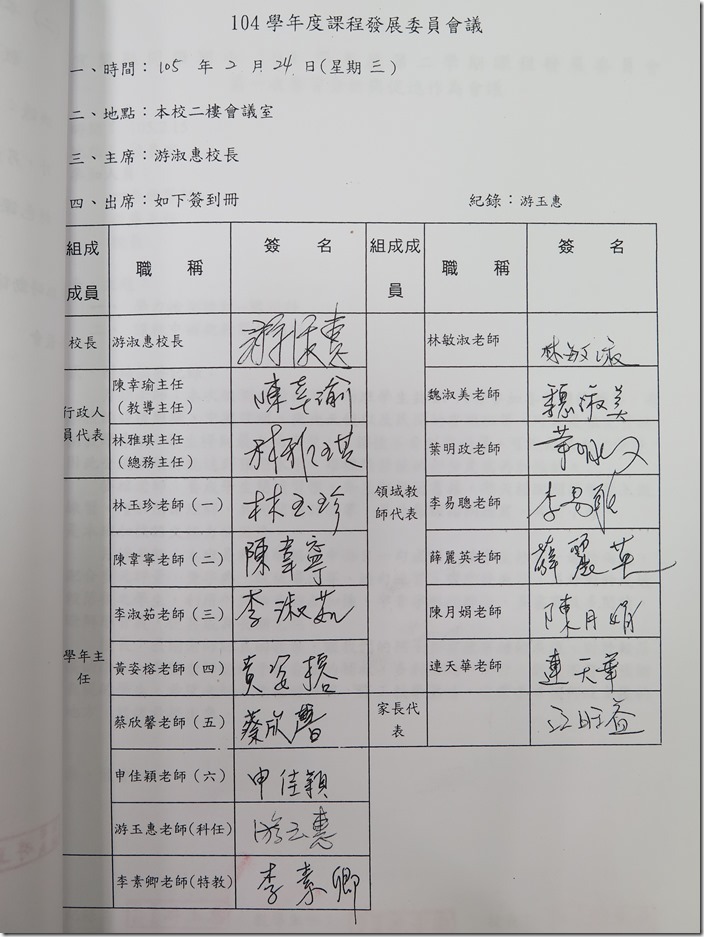 104 學年度課程發展委員會議
一、時間：105 年 2 月 24 日(星期 三)
二、地點：本校二樓會議室
三、主席：游淑惠校長
四、出席：如下簽到冊 紀錄：游玉惠
組成成員 職稱 簽名 組成成員 職稱 簽名
校長 游淑惠校長 游淑惠
行政人員代表
陳幸瑜主任（教導主任） 陳幸瑜
林雅琪主任（總務主任） 林雅琪
學年主任
林玉珍老師（一） 林玉珍
陳韋寧老師（二） 陳韋寧
李淑茹老師（三） 李淑茹
黃姿榕老師（四） 黃姿榕
蔡欣馨老師（五） 蔡欣馨
申佳穎老師（六） 申佳穎
游玉惠老師(科任) 游玉惠
李素卿老師(特教) 李素卿
領域教師代表
林敏淑老師 林敏淑
魏淑美老師 魏淑美
葉明政老師 葉明政
李易聰老師 李易聰
薛麗英老師 薛麗英
陳月娟老師 陳月娟
連天華老師 連天華
家長代表